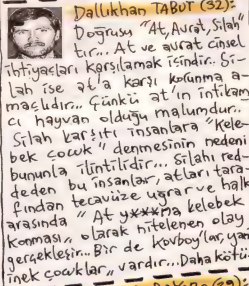 Dallıkhan TABUT (32):
Doğrusu "At, Avrat, Silah"
tır... At ve avrat cinsel
ihtiyaçları karşılamak içindir. Si-
lah ise at'a karşı korunma a-
maçlıdır... Çünkü at'ın intikam
cı hayvan olduğu malumdur.
Silah karşıtı insanlara "Kele-
bek çocuk" denmesinin nedeni
bununla ilintilidir... Silahı red-
deden bu insanlar, atları tara-
fından tecavüze uğrar ve halk
arasında "At y***ma kelebek
konması" olarak nitelenen olay
gerçekleşir... Bir de kovboy'lar, yani
inek çocuklar" vardır... Daha kötü